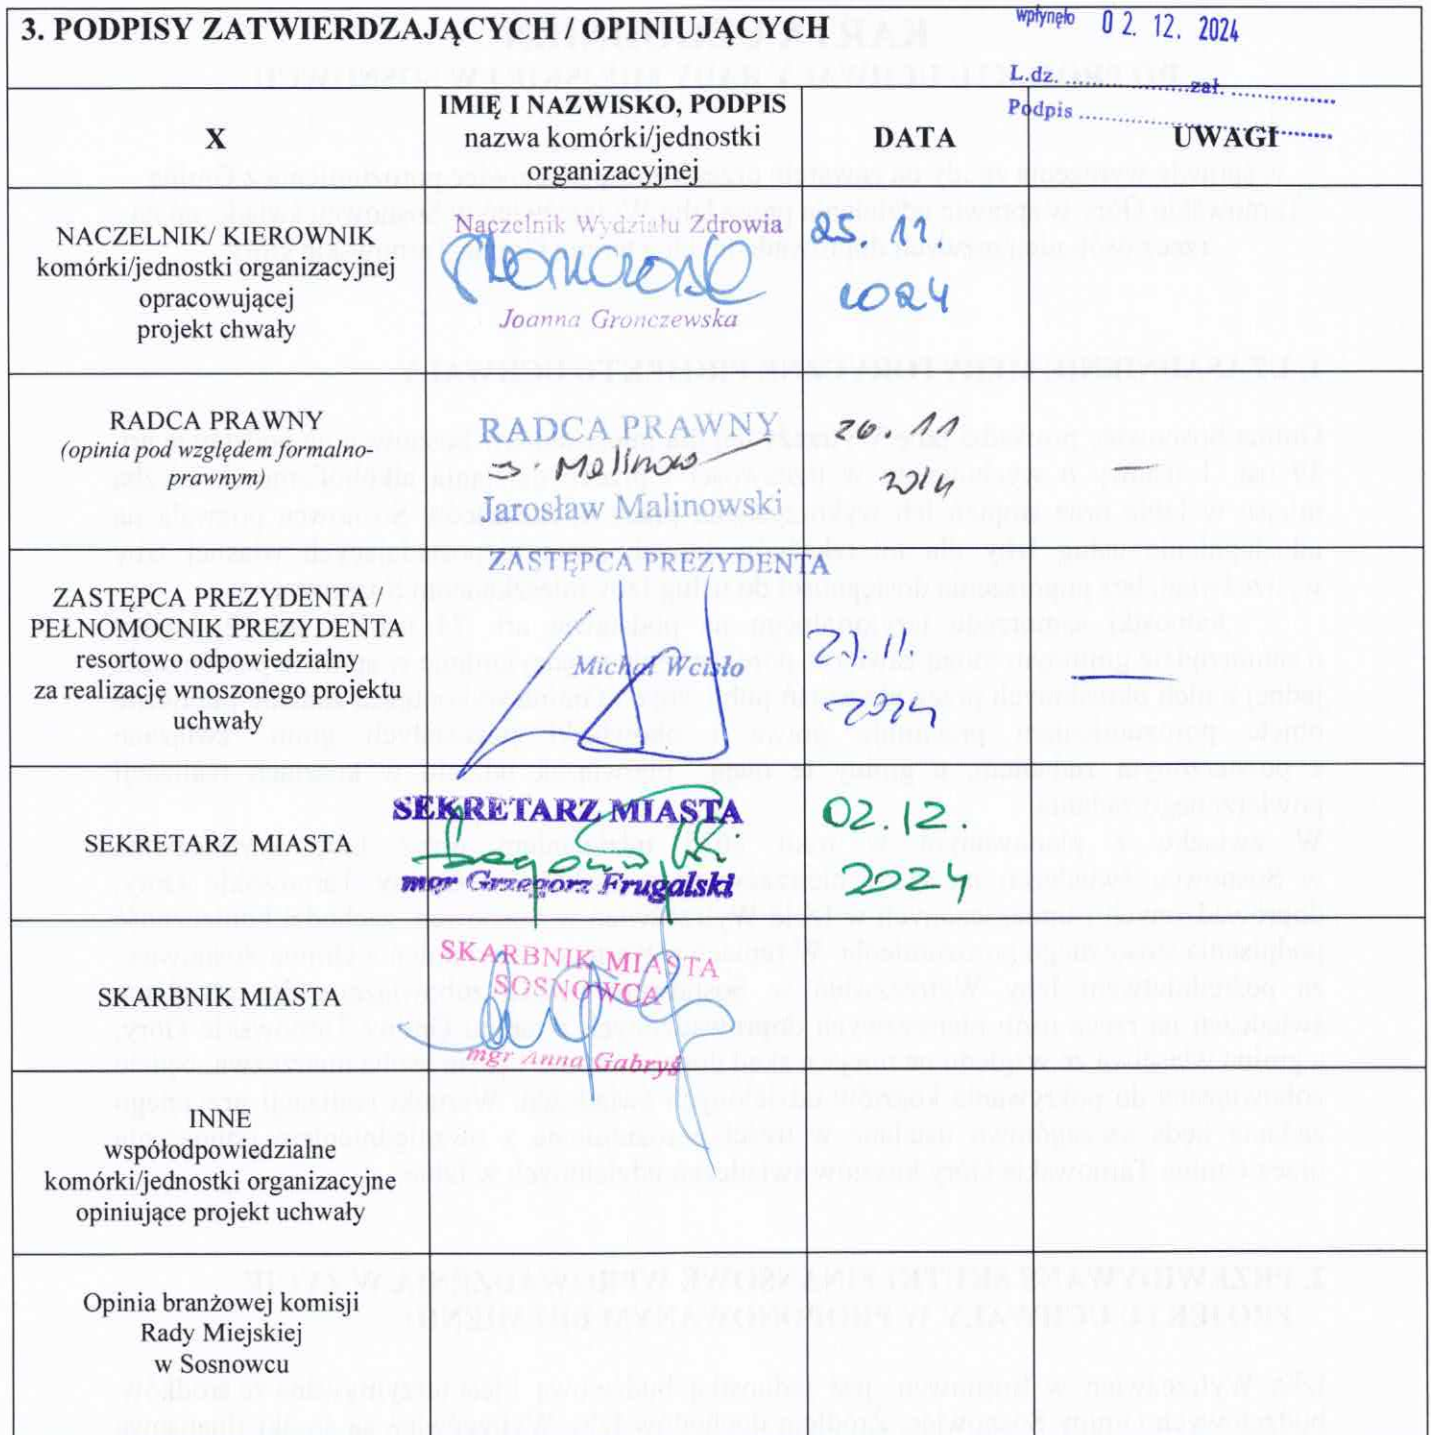 3. PODPISY ZATWIERDZAJĄCYCH / OPINIUJĄCYCH
wpłynęło 02. 12. 2024
L.dz. ............ zał. ............
Podpis ............
X
IMIĘ I NAZWISKO, PODPIS
nazwa komórki/jednostki
organizacyjnej
DATA
UWAGI
NACZELNIK/ KIEROWNIK
komórki/jednostki organizacyjnej
opracowującej
projekt chwały
Naczelnik Wydziału Zdrowia
Joanna Gronczewska
25.11.
2024
RADCA PRAWNY
(opinia pod względem formalno-
prawnym)
RADCA PRAWNY
J. Malinow
Jarosław Malinowski
26.11
2024
—
ZASTĘPCA PREZYDENTA /
PEŁNOMOCNIK PREZYDENTA
resortowo odpowiedzialny
za realizację wnoszonego projektu
uchwały
ZASTĘPCA PREZYDENTA
Michał Wcisło
2024
—
SEKRETARZ MIASTA
SEKRETARZ MIASTA
mgr Grzegorz Frugalski
02.12.
2024
SKARBNIK MIASTA
SKARBNIK MIASTA
SOSNOWCA
mgr Anna Gabryś
INNE
współodpowiedzialne
komórki/jednostki organizacyjne
opiniujące projekt uchwały
Opinia branżowej komisji
Rady Miejskiej
w Sosnowcu